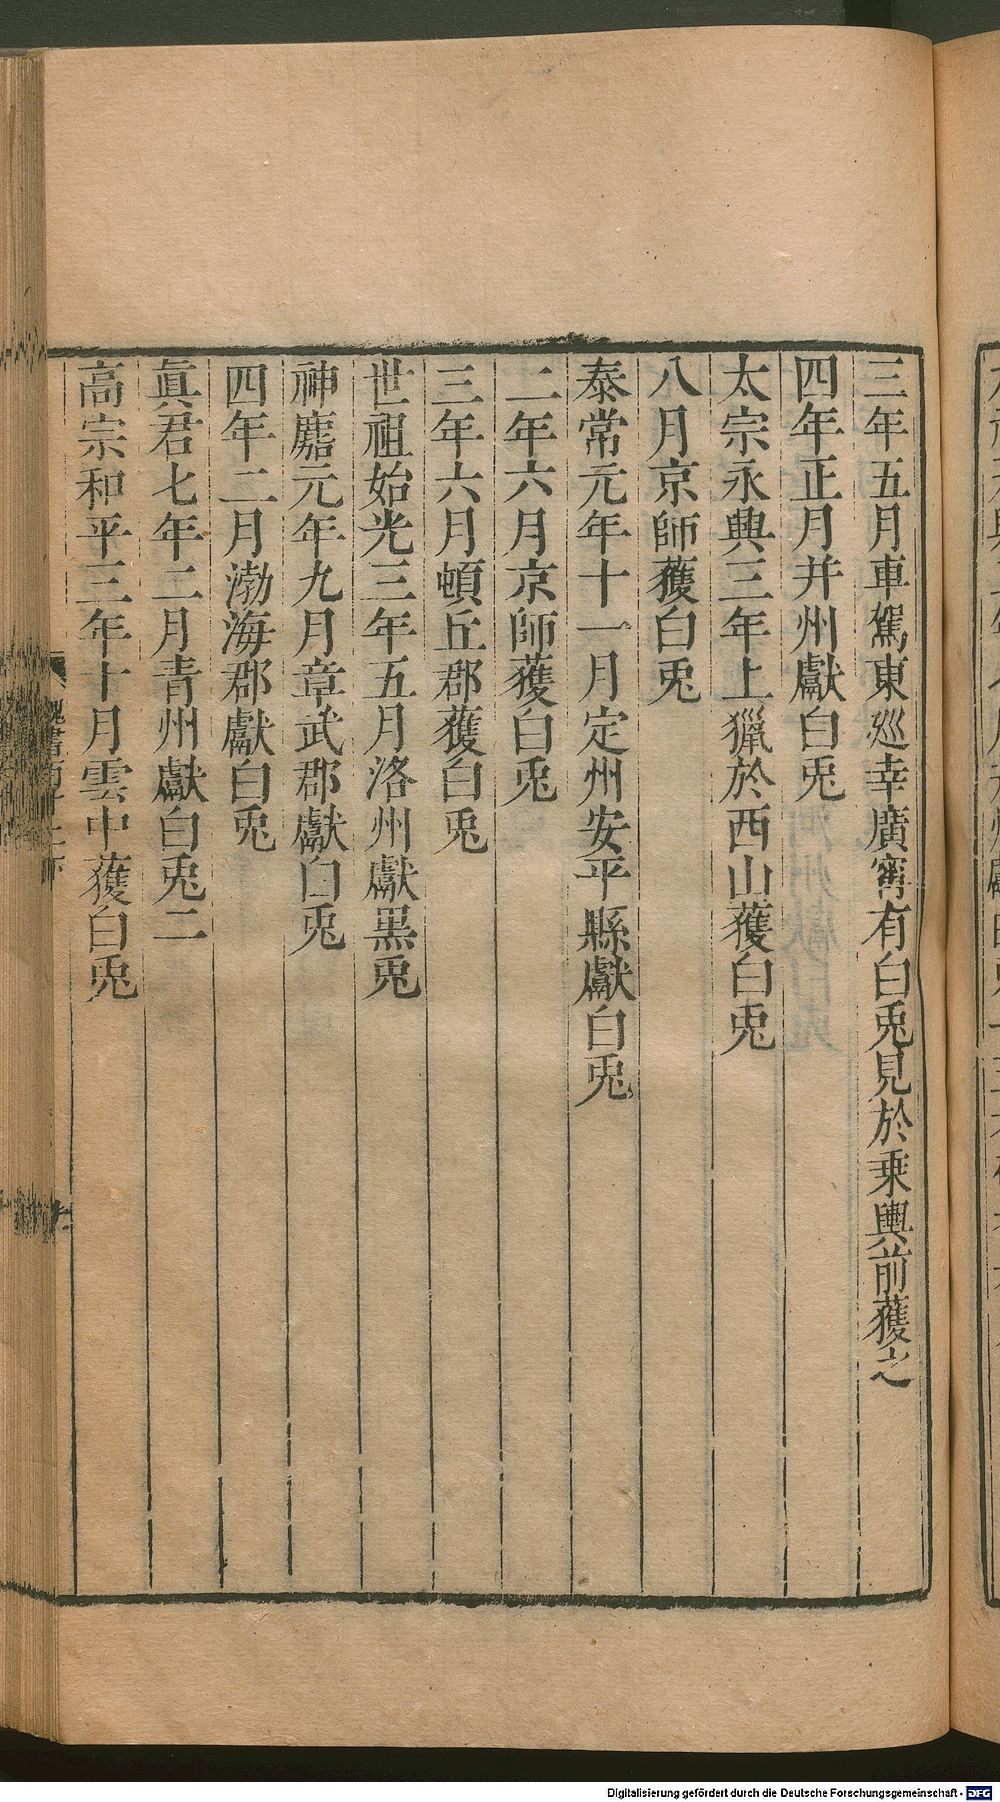 三年五月車駕東巡幸廣寗有白兎見於乗輿前獲之
四年正月并州獻白兎
太宗永興三年上獵於西山獲白兎
八月京師獲白兎
泰常元年十一月定州安平縣獻白兎
二年六月京師獲白兎
三年六月頓丘郡獲白兎
世祖始光三年五月洛州獻黒兎
神䴥元年九月章武郡獻白兎
四年二月渤海郡獻白兎
眞君七年二月青州獻白兎二
高宗和平三年十月雲中獲白兎
Digitalisierung gefördert durch die Deutsche Forschungsgemeinschaft - DFG